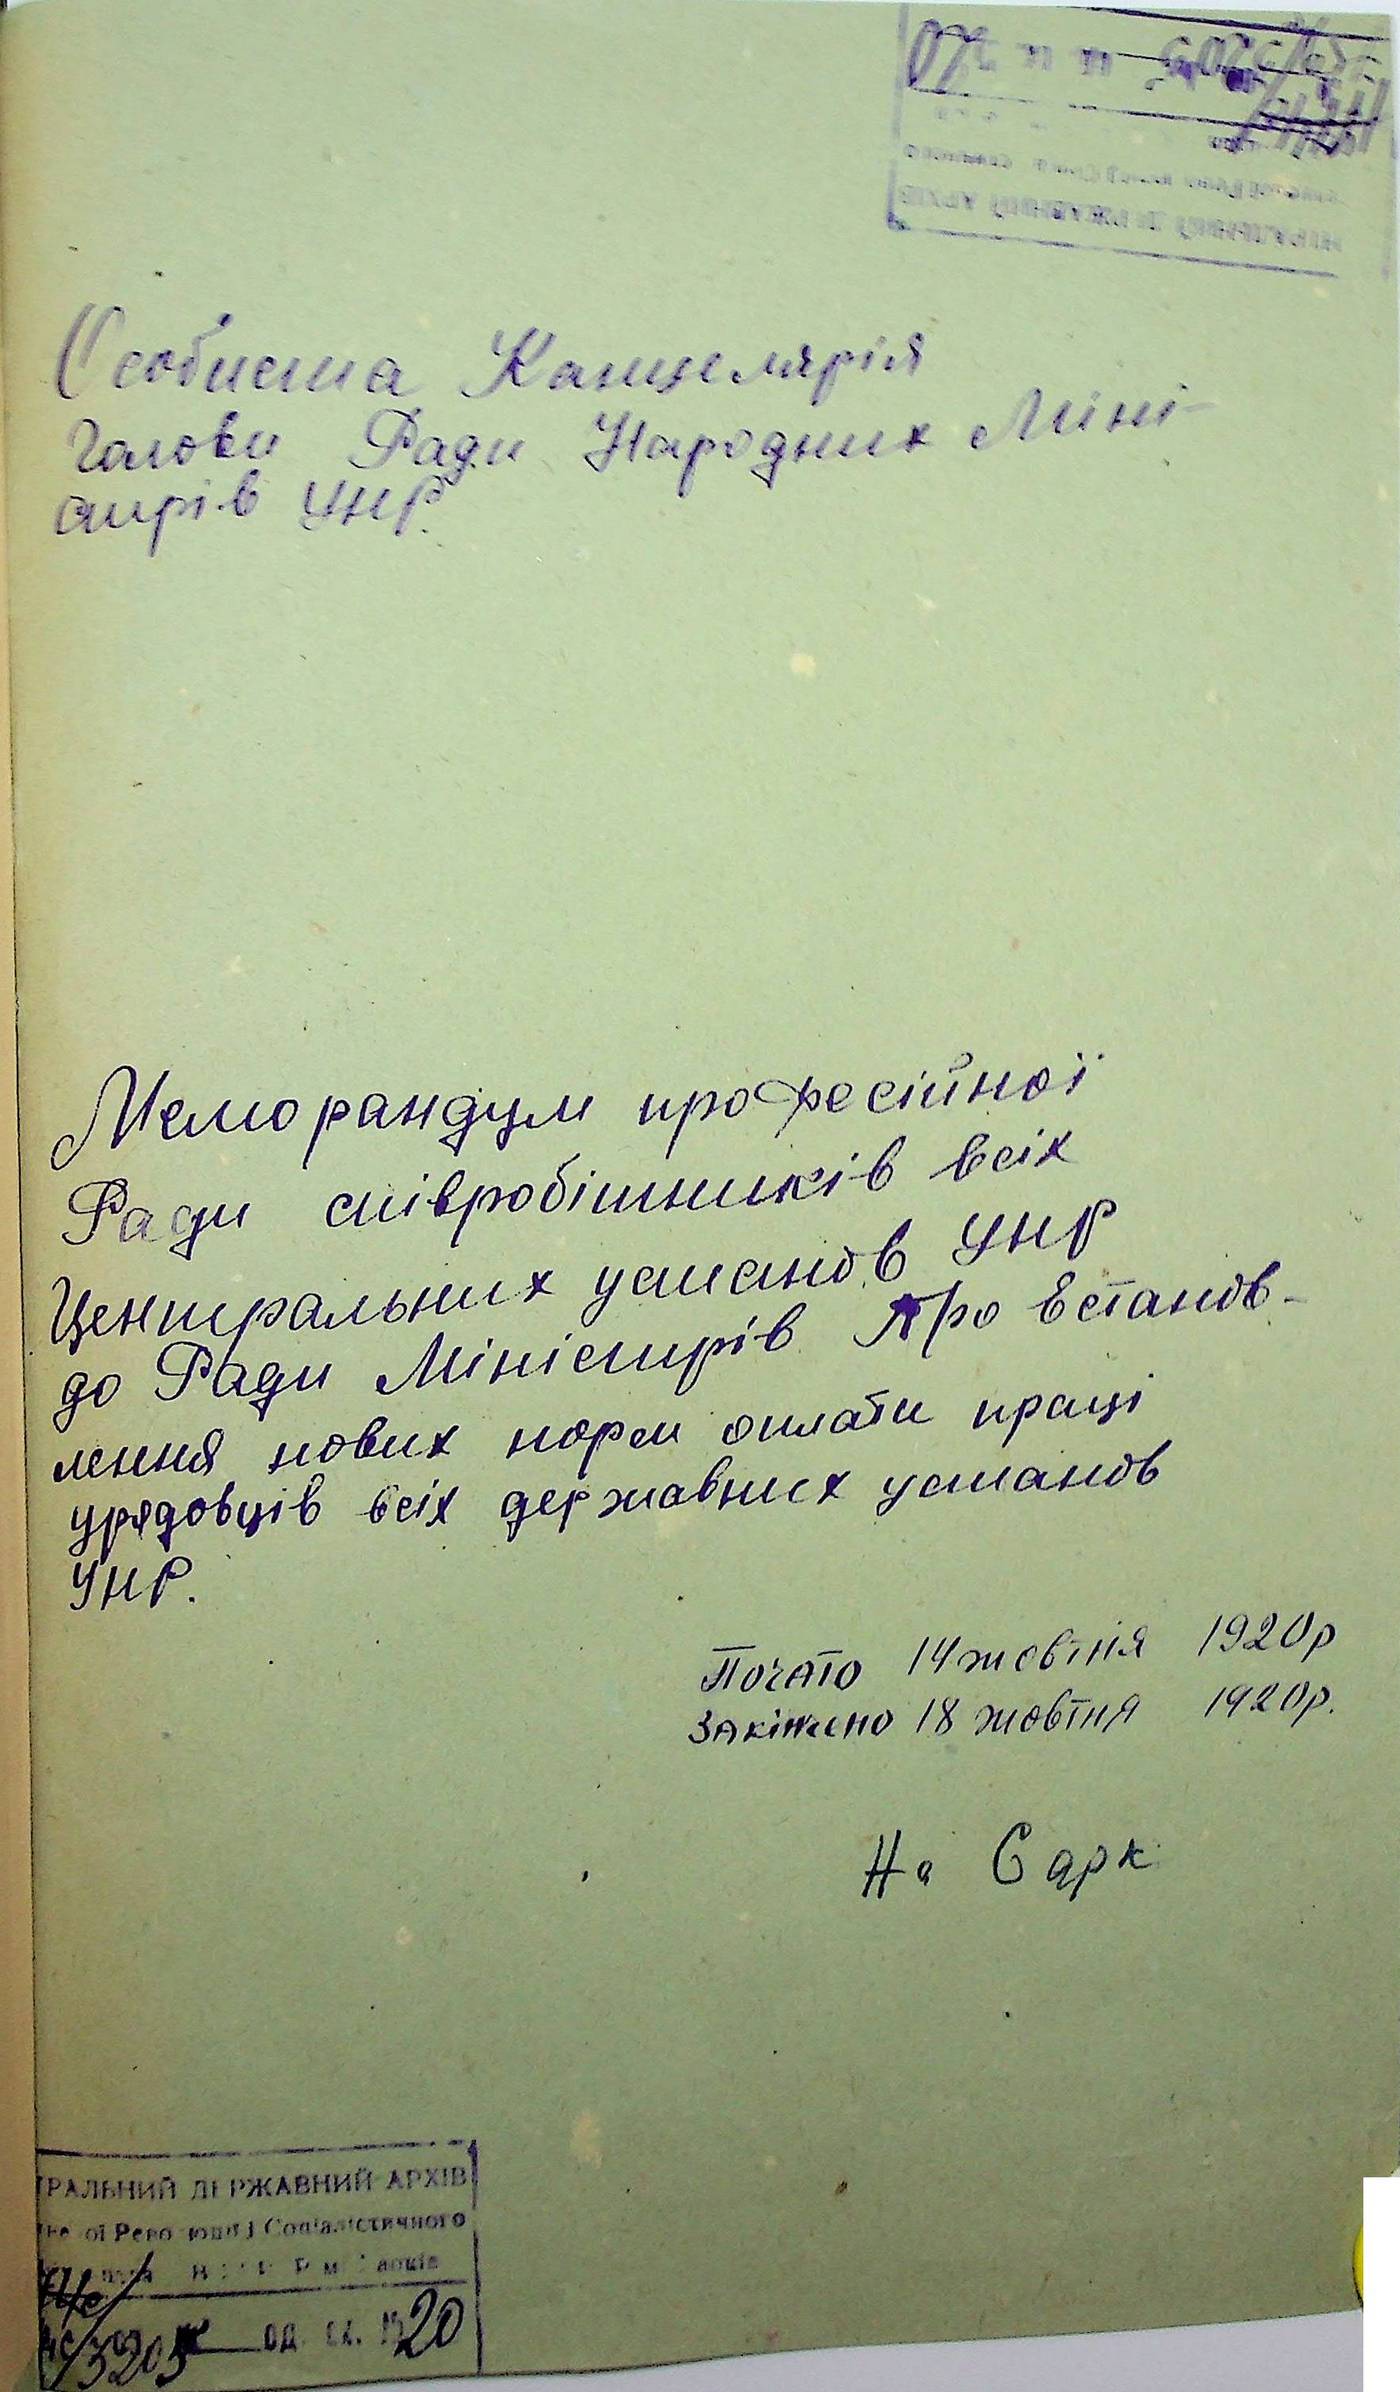 Особиста Канцелярія
Голови Ради Народних Міні-
стрів УНР.
Меморандум професійної
Ради співробітників всіх
Центральних установ УНР
до Ради Міністрів про встанов-
лення нових норм оплати праці
урядовців всіх державних установ
УНР.
Почато 14 жовтня 1920р
Закінчено 18 жовтня 1920р.
На арк
РАЛЬНИЙ ДЕРЖАВНИЙ АРХІВ
Соціалістичного
3205 ОД. 20